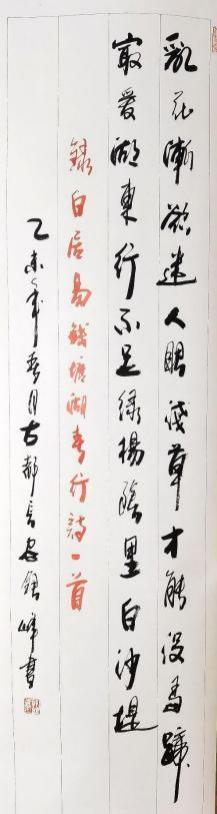 亂花漸欲迷人眼淺草才能没馬蹄
最愛湖東行不足綠楊陰里白沙堤
錄白居易錢塘湖春行詩一首
乙未年春月古都長安鎮峰書